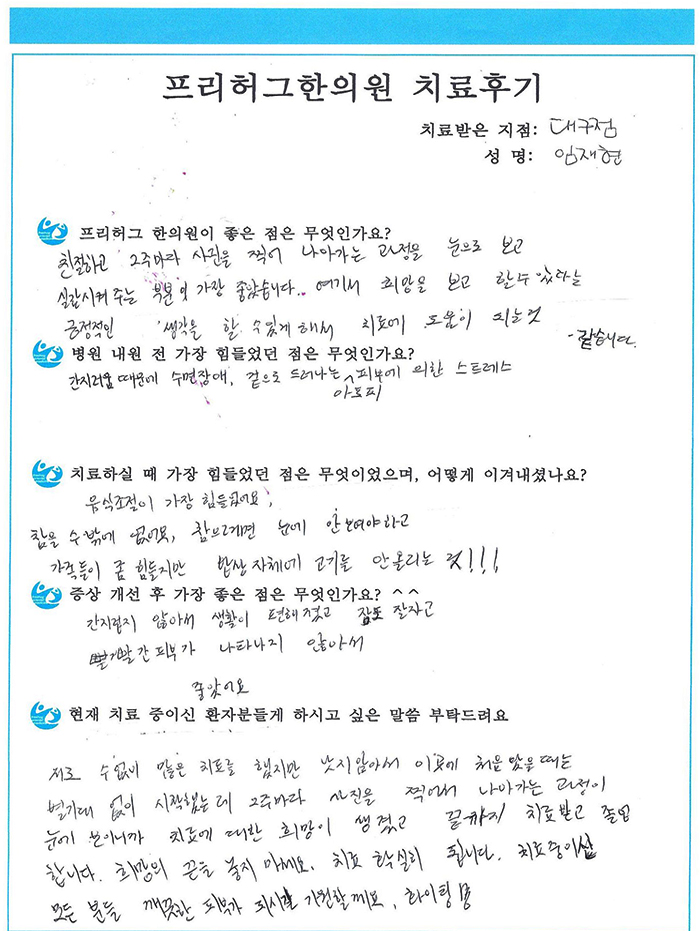 프리허그한의원 치료후기
치료받은 지점: 대구점
성 명: 임재현
프리허그 한의원이 좋은 점은 무엇인가요?
친절하고 2주마다 사진을 찍어 나아가는 과정을 눈으로 보고
실감시켜 주는 부분이 가장 좋았습니다.. 여기서 희망을 보고 할 수 있다는
긍정적인 생각을 할 수 있게 해서 치료에 도움이 되는것
-같습니다.
병원 내원 전 가장 힘들었던 점은 무엇인가요?
간지러움 때문에 수면장애, 겉으로 드러나는 아토피 피부에 의한 스트레스
치료하실 때 가장 힘들었던 점은 무엇이었으며, 어떻게 이겨내셨나요?
음식조절이 가장 힘들었어요,
참을 수 밖에 없어요, 참으려면 눈에 안보여야하고
가족들이 좀 힘들지만 밥상 자체에 고기를 안 올리는 것!!!
증상 개선 후 가장 좋은 점은 무엇인가요? ^^
간지럽지 않아서 생활이 편해졌고 잠도 잘자고
빨간 피부가 나타나지 않아서
좋았어요
현재 치료 중이신 환자분들게 하시고 싶은 말씀 부탁드려요
저도 수없이 많은 치료를 했지만 낫지않아서 이곳에 처음 왔을때는
별기대 없이 시작했는데 2주마다 사진을 찍어서 나아가는 과정이
눈에 보이니까 치료에 대한 희망이 생겼고 끝까지 치료받고 졸업
합니다. 희망의 끈을 놓지 마세요. 치료 확실히 됩니다. 치료중이신
모든 분들 깨끗한 피부가 되시길 기원할께요, 화이팅